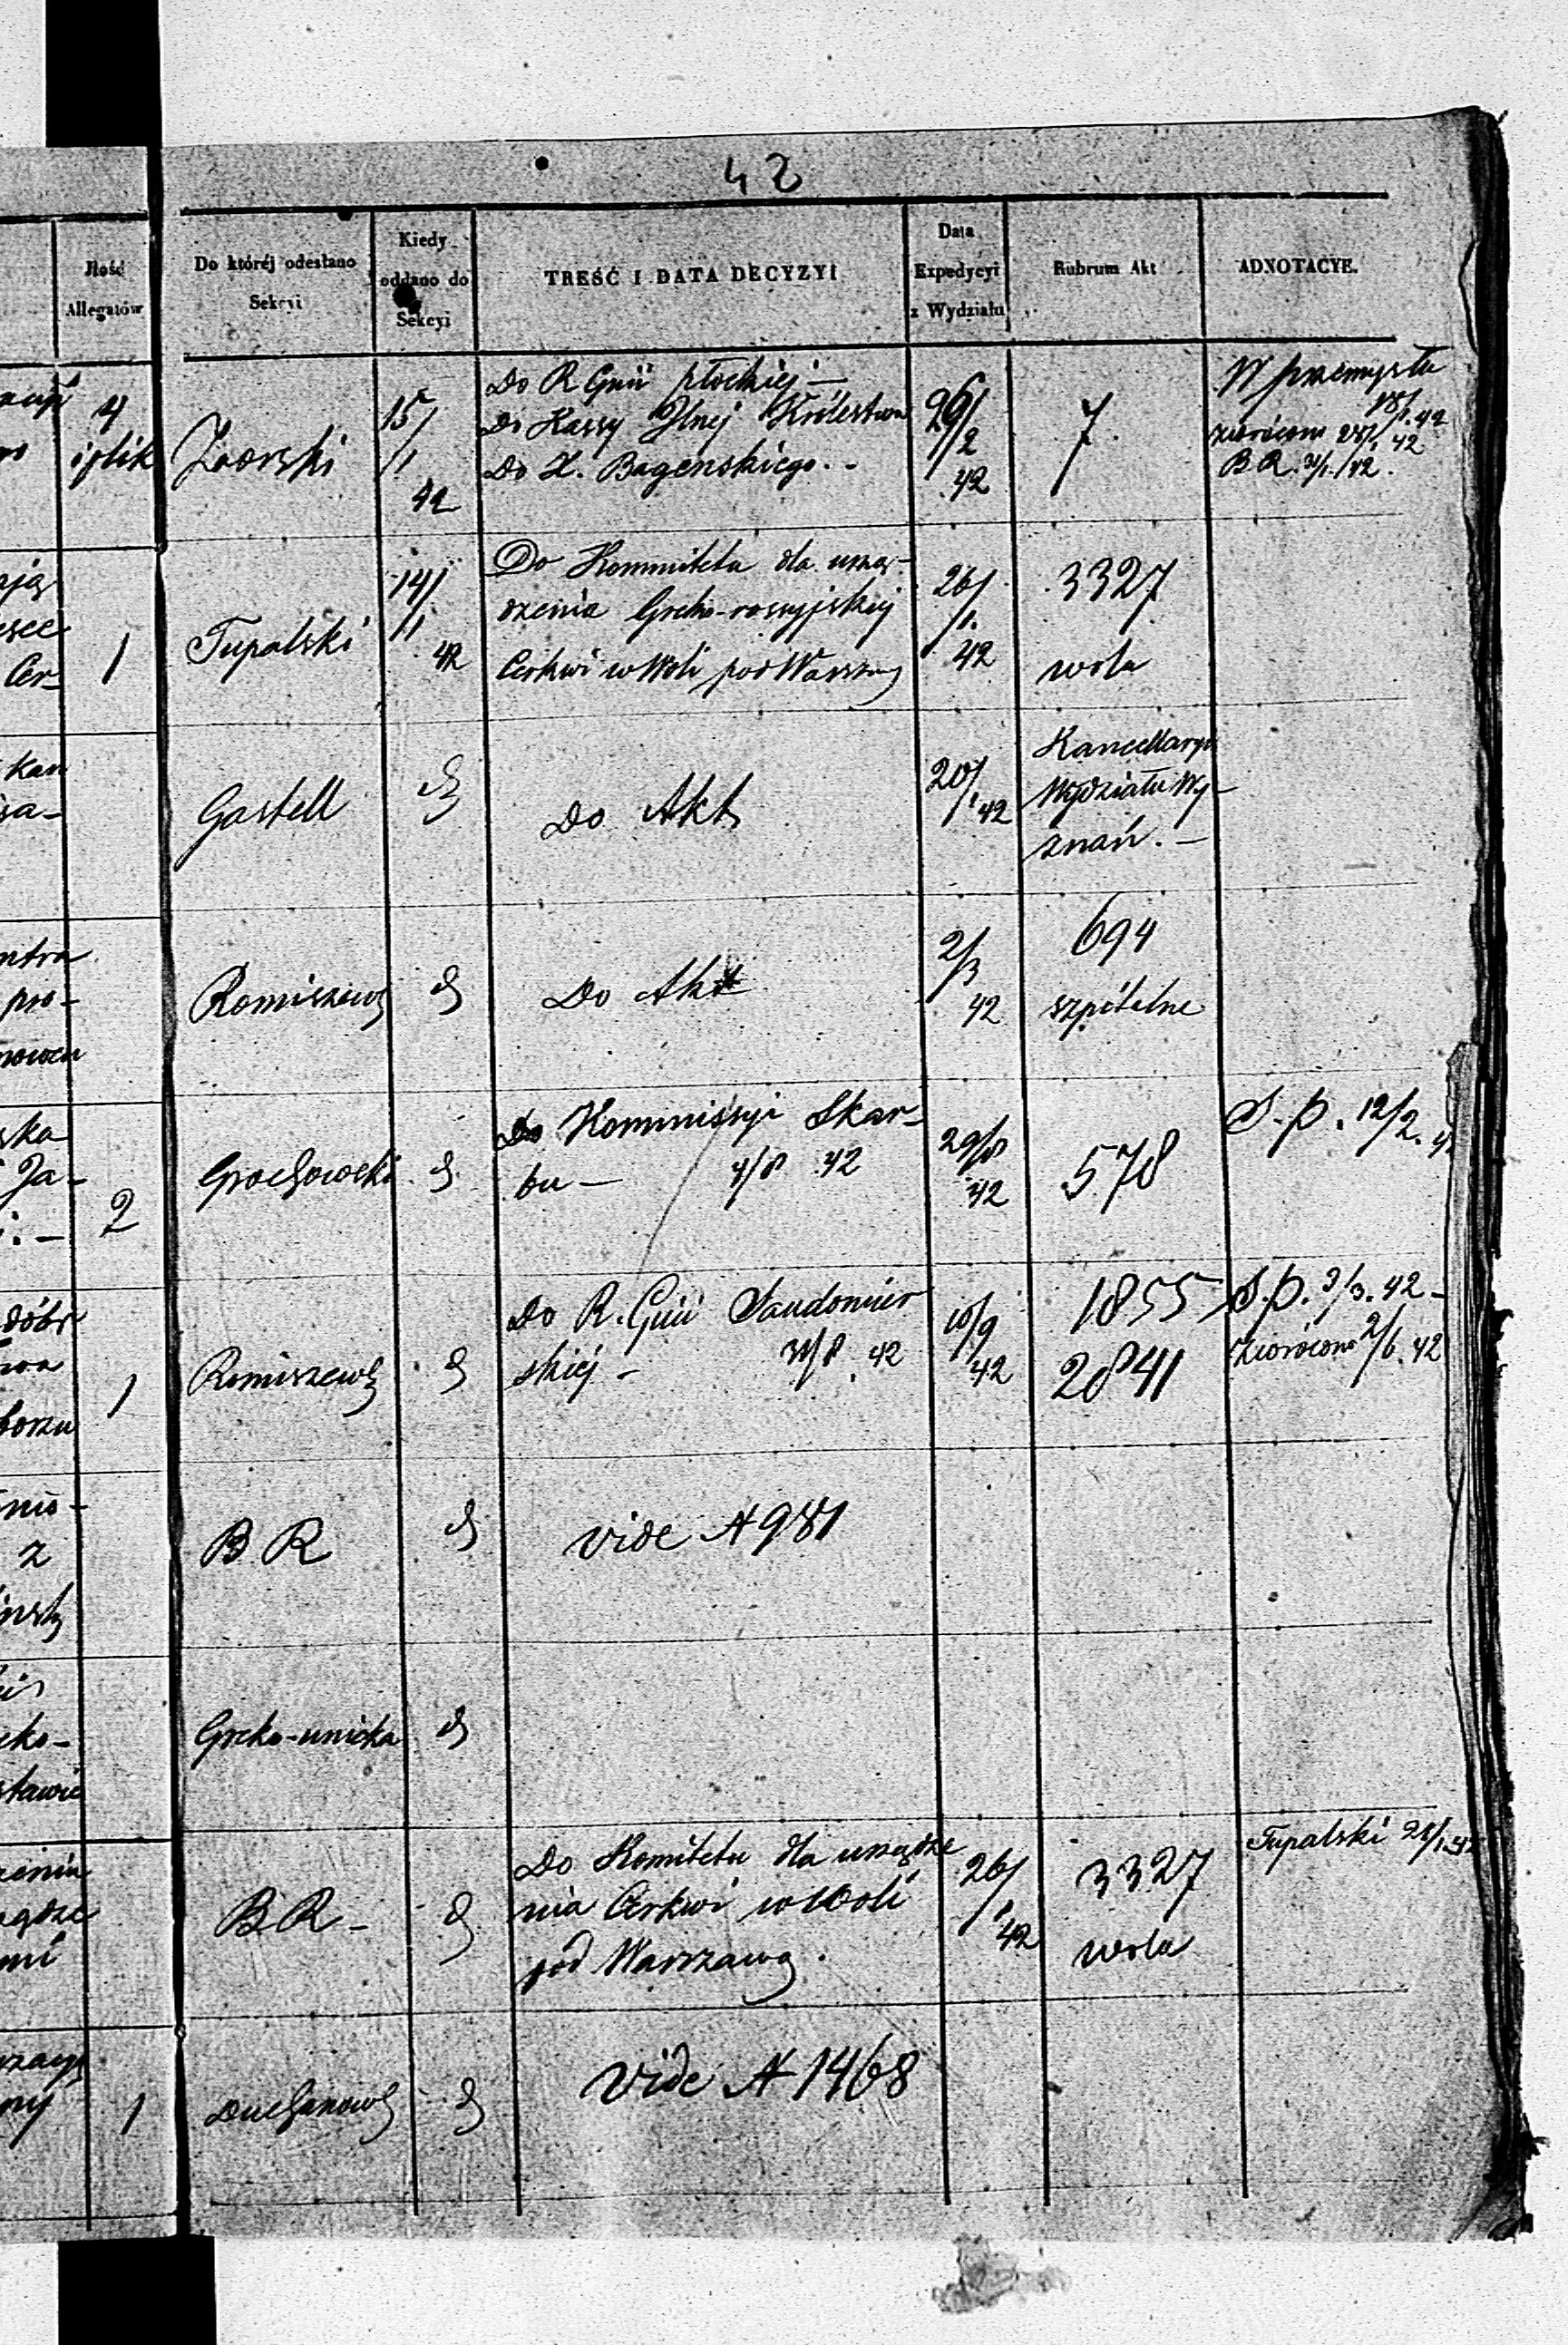 42
Ilość
Allegatów
Do któréj odesłano
Sekcyi
Kiedy
oddano do
Sekcyi
TREŚĆ I DATA DECYZYI
Data
Expedycyi
z Wydziału
Rubrum Akt
ADNOTACYE.
4
i plik
15/
/1
42
Do R Gnii płockiej —
Do Kassy Głnej Królestwa
Do X. Bagenskiego. -
26/
/2
42
7.
W przemysłu
18/1.42
zwrócono 28/1 42
B R. 31/1./42.
Cer-
1
Tupalski
14/
/1
42
Do Kommitetu dla urzą-
dzenia Greko-rossyjskiej
Cerkwi w Woli pod Warszawą
26/
/1.
42
3327
wola
Kan
Gastell
d
Do Akt
20/
/1 42
Kancellarya
Wydziału Wy-
znań. —
pro-
Romiszews
d
Do Akt
2/3
42
694
szpitalne
ska
Ja-
2
Grochowski
d
Do Kommissyi Skar-
bu — 4/8 42
29/8
42
578
S. p. 12/2. 42
dóbr
1
Romiszews
d
Do R. Gnii Sandomier
skiej - 31/8. 42
10/9
42
1855
2841
S. p. 3/3. 42 -
zwrócono 2/6. 42
z
B. R
d
vide N 981
eko-
stawie
Greko-unicka
d
B R -
d
Do Komitetu dla urządze
nia Cerkwi w Woli
pod Warszawą.
26/
/1
42
3327
wola
Tupalski 28/1.42
1
Duchanows
d
Vide N 1468